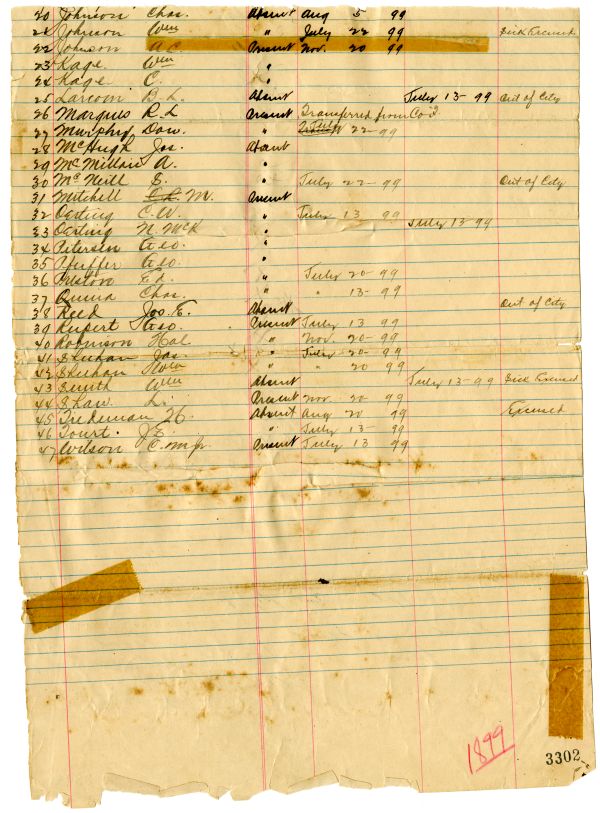 20 Johnson Chas. Absent Aug 5 99
21 Johnson Wm " July 22 99 Sick Excused
22 Johnson A.C. Present Nov. 20 99
23 Kage Wm "
24 Kage C. "
25 Larcom B. L. Absent July 13-99 Out of City
26 Marques R. L Present Transferred from Co
27 Murphy Dow. " 22-99
28 McHugh Jas. Absent
29 McMillan A. "
30 McNeill S. " July 22-99 Out of City
31 Mitchell M. Present
32 Oerting C.W. " July 13-99
33 Oerting N. McK " July 13-99
34 Petersen Geo. "
35 Pfeiffer Geo. "
36 Ed. " July 20-99
37 Quina Chas. " " 13-99
38 Reed Jos. E. Absent Out of City
39 Rupert Geo. Present July 13 99
40 Robinson Hal " Nov. 20-99
41 Sheehan Jas. " July 20-99
42 Sheehan " " 20 99
43 Smith Wm Absent July 13-99 Sick Excused
44 Shaw L. Present Nov. 20 99
45 H. Absent Aug 20 99 Excused
46 Tourt. " July 13-99
47 Wilson C. M. Jr. Present July 13 99
1899
3302